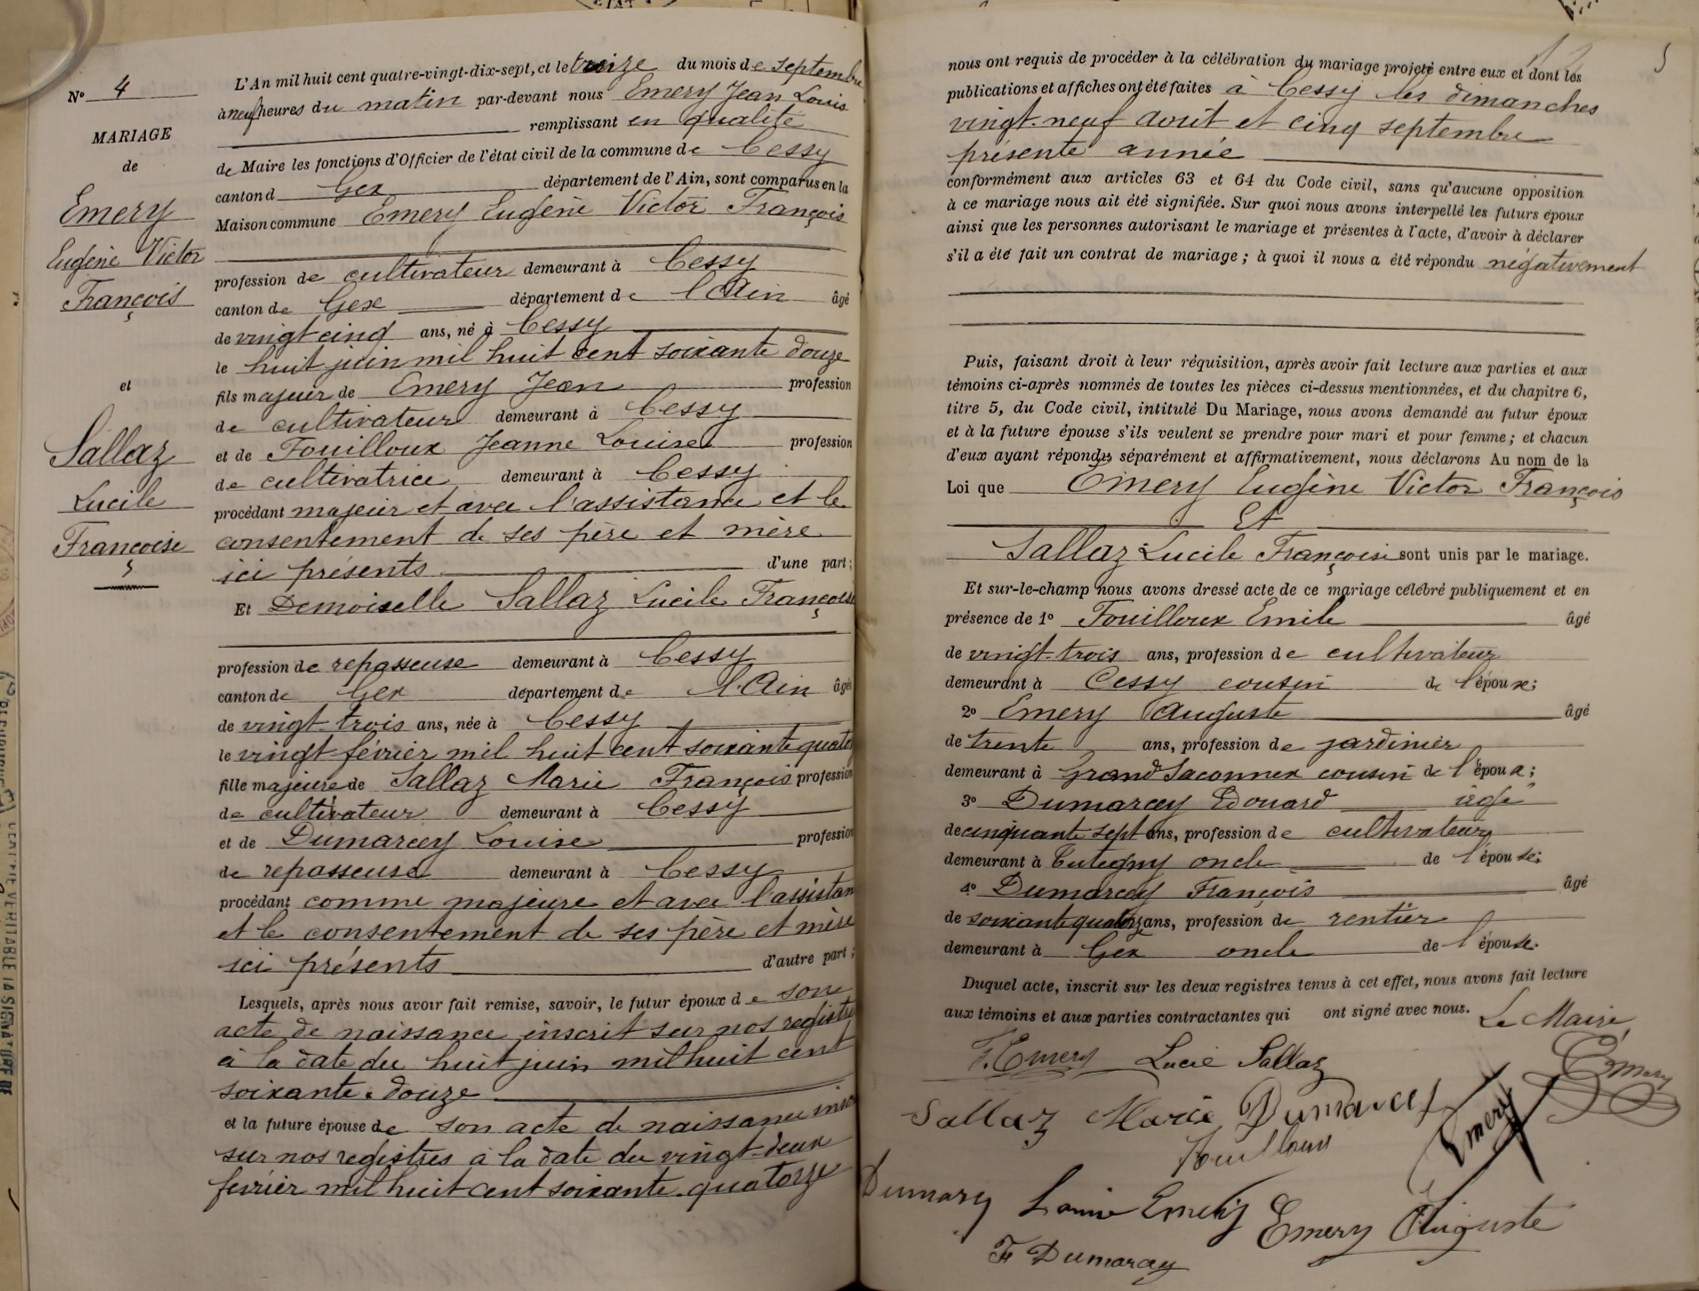 N° 4
MARIAGE
de
Emery
Eugène Victor
François
et
Sallaz
Lucile
Françoise
L'An mil huit cent quatre-vingt-dix-sept, et le treize du mois de septembre
à neuf heures du matin par-devant nous Emery Jean Louis
remplissant en qualité
de Maire les fonctions d'Officier de l'état civil de la commune de Cessy
canton d Gex département de l'Ain, sont comparus en la
Maison commune Emery Eugène Victor François
profession de cultivateur demeurant à Cessy
canton de Gex département de l'Ain âgé
de vingt cinq ans, né à Cessy
le huit juin mil huit cent soixante douze
fils majeur de Emery Jean profession
de cultivateur demeurant à Cessy
et de Fouilloux Jeanne Louise profession
de cultivatrice demeurant à Cessy
procédant majeur et avec l'assistance et le
consentement de ses père et mère
ici présents d'une part;
Et Demoiselle Sallaz Lucile Françoise
profession de repasseuse demeurant à Cessy
canton de Gex département de l'Ain âgée
de vingt-trois ans, née à Cessy
le vingt février mil huit cent soixante quato
fille majeure de Sallaz Marie François profession
de cultivateur demeurant à Cessy
et de Dumarcey Louise profession
de repasseuse demeurant à Cessy
procédant comme majeure et avec l'assistan
et le consentement de ses père et mère
ici présents d'autre part;
Lesquels, après nous avoir fait remise, savoir, le futur époux de son
acte de naissance inscrit sur nos registres
à la date du huit juin mil huit cent
soixante-douze
et la future épouse de son acte de naissance insc
sur nos registres à la date du vingt-deux
février mil huit cent soixante-quatorze
nous ont requis de procéder à la célébration du mariage projeté entre eux et dont les
publications et affiches ont été faites à Cessy les dimanches
vingt-neuf août et cinq septembre
présente année
conformément aux articles 63 et 64 du Code civil, sans qu'aucune opposition
à ce mariage nous ait été signifiée. Sur quoi nous avons interpellé les futurs époux
ainsi que les personnes autorisant le mariage et présentes à l'acte, d'avoir à déclarer
s'il a été fait un contrat de mariage; à quoi il nous a été répondu négativement
Puis, faisant droit à leur réquisition, après avoir fait lecture aux parties et aux
témoins ci-après nommés de toutes les pièces ci-dessus mentionnées, et du chapitre 6,
titre 5, du Code civil, intitulé Du Mariage, nous avons demandé au futur époux
et à la future épouse s'ils veulent se prendre pour mari et pour femme; et chacun
d'eux ayant répondu séparément et affirmativement, nous déclarons Au nom de la
Loi que Emery Eugène Victor François
Et
Sallaz Lucile Françoise sont unis par le mariage.
Et sur-le-champ nous avons dressé acte de ce mariage célébré publiquement et en
présence de 1° Fouilloux Emile âgé
de vingt-trois ans, profession de cultivateur
demeurant à Cessy cousin de l'époux;
2° Emery Auguste âgé
de trente ans, profession de jardinier
demeurant à Grand Saconnex cousin de l'époux;
3° Dumarcey Edouard âgé
de cinquante sept ans, profession de cultivateur
demeurant à Cutegny oncle de l'épouse;
4° Dumarcey François âgé
de soixante quatorze ans, profession de rentier
demeurant à Gex oncle de l'épouse.
Duquel acte, inscrit sur les deux registres tenus à cet effet, nous avons fait lecture
aux témoins et aux parties contractantes qui ont signé avec nous. Le Maire,
F. Emery Lucie Sallaz Emery
Sallaz Marie Dumarcey Emery
Fouilloux
Dumarcy Louise Emery Emery Auguste
Fs Dumarcey